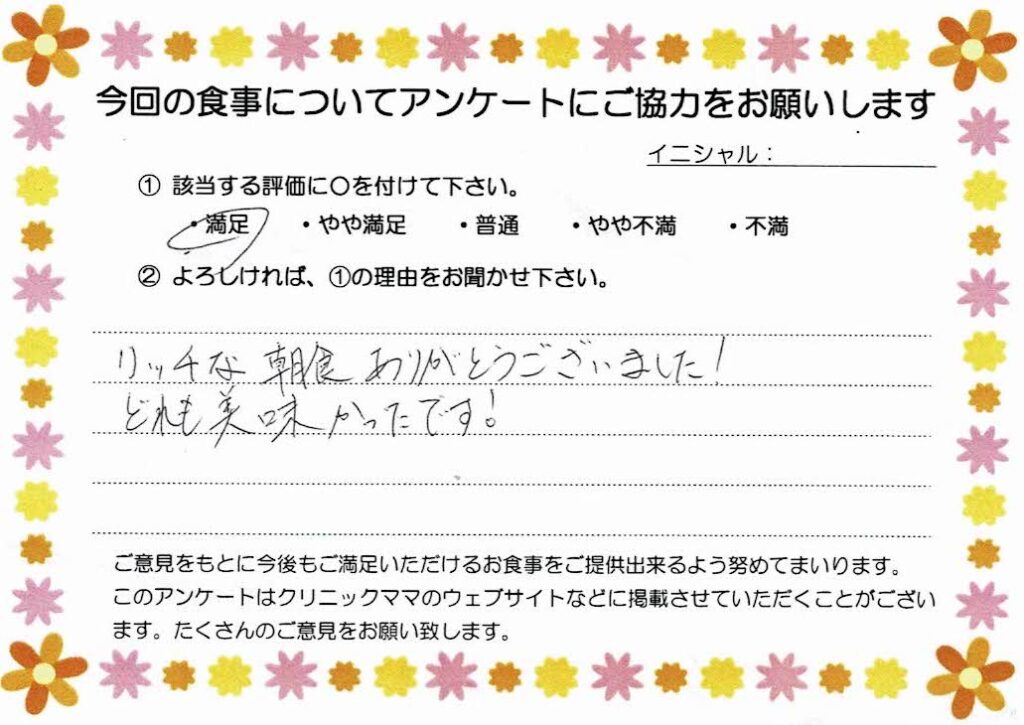 今回の食事についてアンケートにご協力をお願いします
イニシャル：
① 該当する評価に〇を付けて下さい。
・満足 ・やや満足 ・普通 ・やや不満 ・不満
② よろしければ、①の理由をお聞かせ下さい。
リッチな朝食ありがとうございました！
どれも美味かったです！
ご意見をもとに今後もご満足いただけるお食事をご提供出来るよう努めてまいります。
このアンケートはクリニックママのウェブサイトなどに掲載させていただくことがござい
ます。たくさんのご意見をお願い致します。